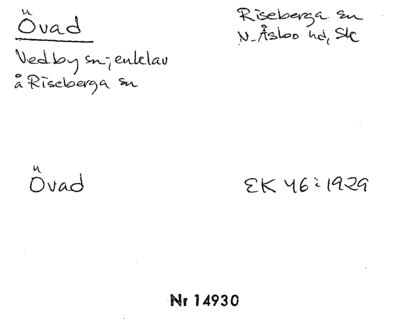 Övad
Riseberga sn
N. Åsbo hd, Sk
Vedby sn; enklav
å Riseberga sn
Övad
EK 46: 1929
Nr 14930